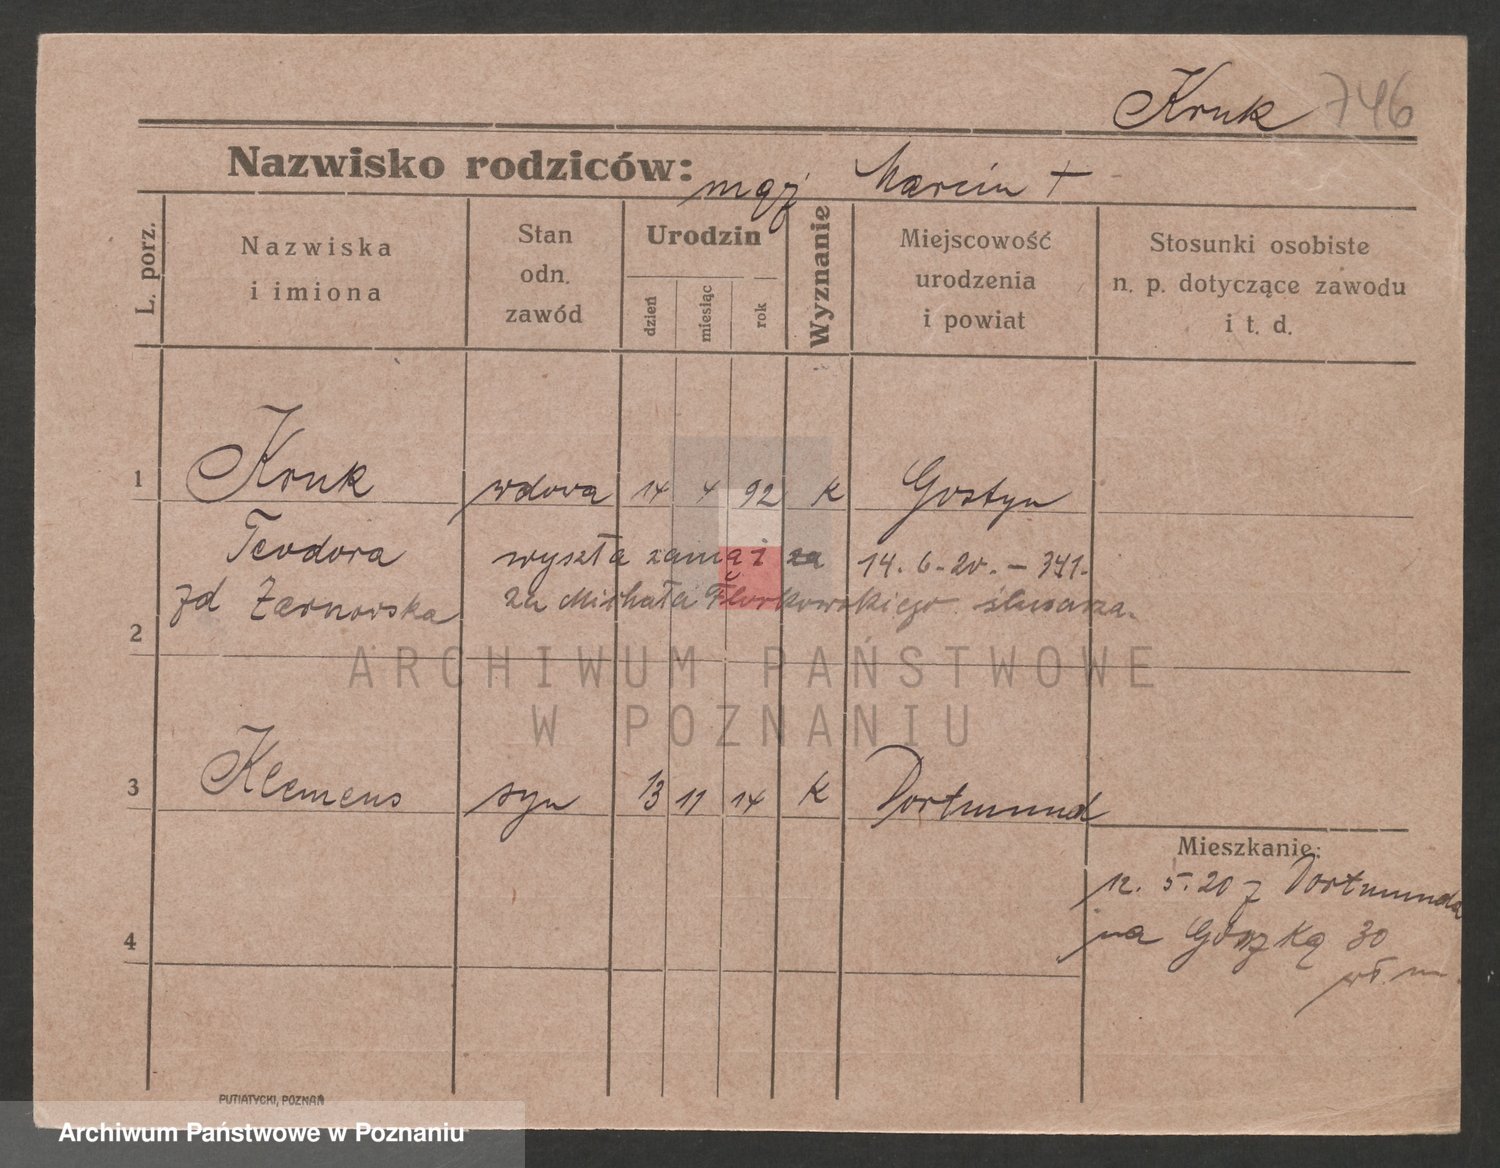 Kruk 746
Nazwisko rodziców: mąż Marcin +
L. porz.
Nazwiska
i imiona
Stan
odn.
zawód
Urodzin
dzień
miesiąc
rok
Wyznanie
Miejscowość
urodzenia
i powiat
Stosunki osobiste
n. p. dotyczące zawodu
i t. d.
1 Kruk wdova 14 4 92 K Gostyn
Teodora wyszła zamąż za 14. 6. 20. – 341.
zd Żarnowska za Michała Florkowskiego ślusarza.
2
ARCHIWUM PAŃSTWOWE
W POZNANIU
3 Klemens syn 13 11 14 K Dortmund
Mieszkanie:
12. 5. 20 z Dortmunda
na 30
wł. m.
4
PUTIATYCKI, POZNAŃ
Archiwum Państwowe w Poznaniu